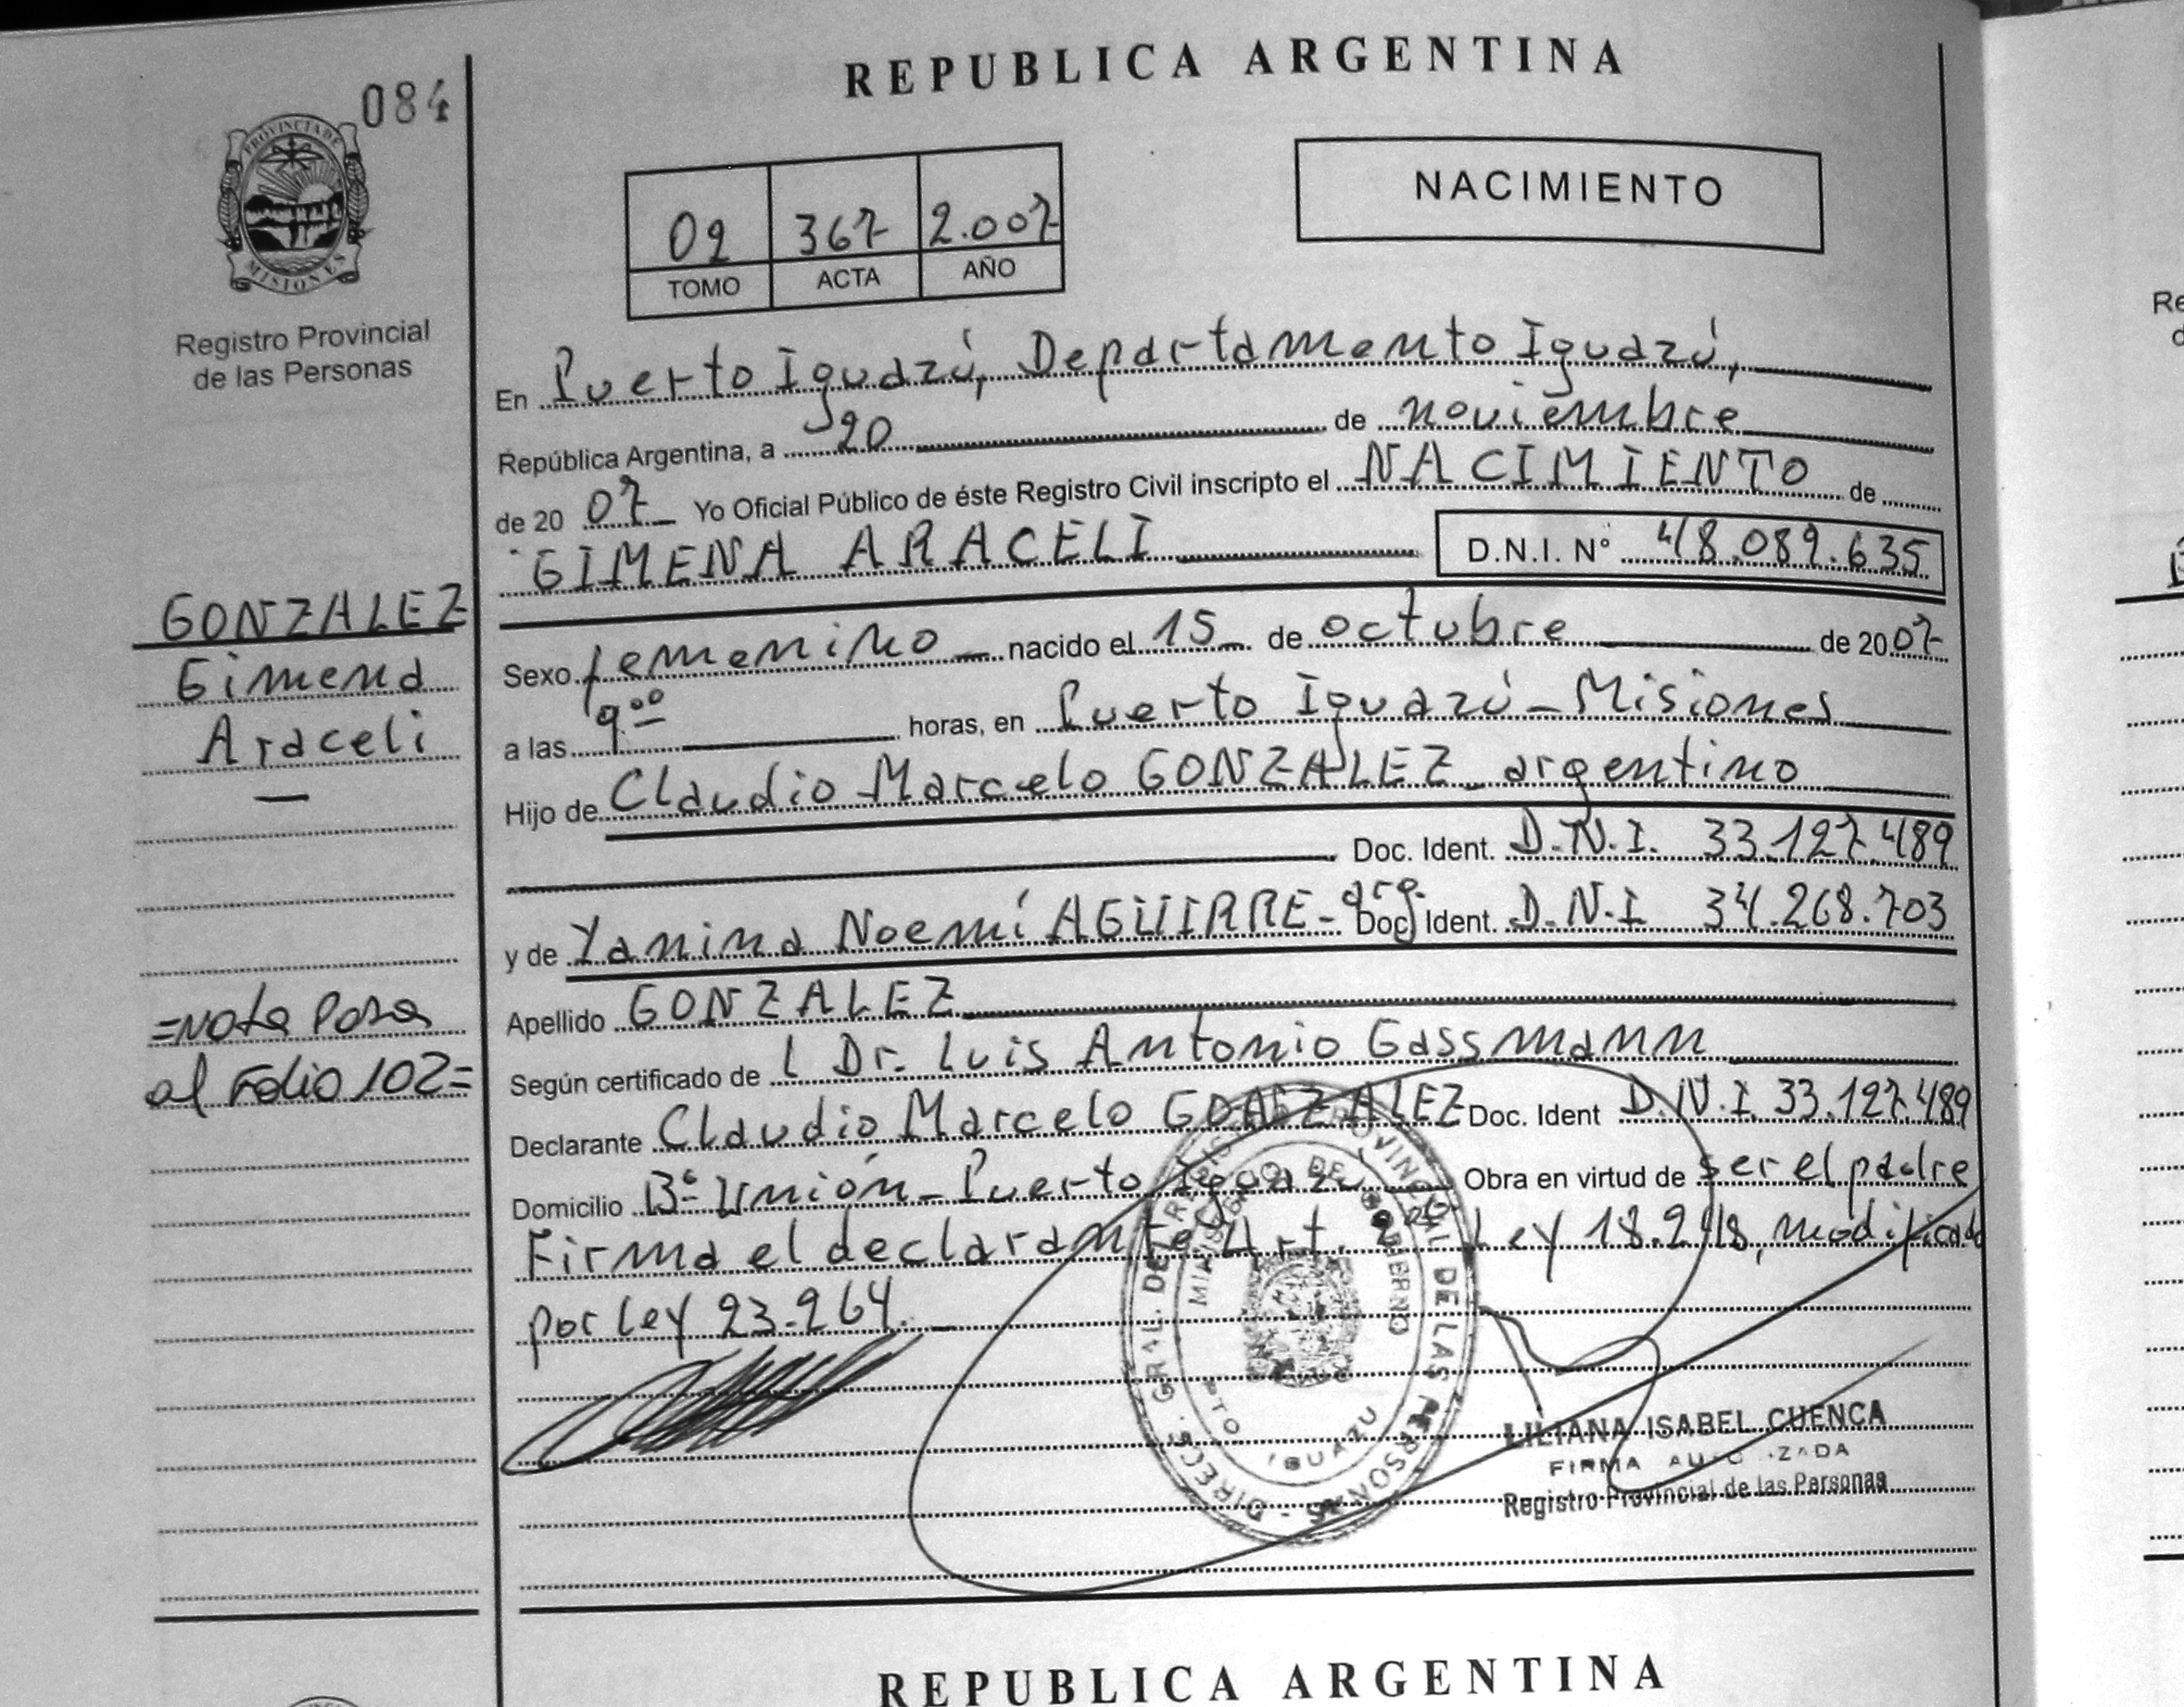 REPUBLICA ARGENTINA
084
PROVINCIA DE
MISIONES
Registro Provincial
de las Personas
NACIMIENTO
02 367 2.007
TOMO ACTA AÑO
En Puerto Iguazú, Departamento Iguazú,
República Argentina, a 20 de noviembre
de 20 07 Yo Oficial Público de éste Registro Civil inscripto el NACIMIENTO de
GIMENA ARACELI D.N.I. N° 48.089.635
GONZALEZ
Gimena
Araceli
Sexo femenino nacido el 15 de octubre de 2007
a las 9⁰⁰ horas, en Puerto Iguazú - Misiones
Hijo de Claudio Marcelo GONZALEZ - argentino
Doc. Ident. D.N.I. 33.127.489
y de Yanina Noemí AGUIRRE - arg. Doc. Ident. D.N.I 34.268.703
Apellido GONZALEZ
=Nota Pasa
al Folio 102=
Según certificado de l Dr. Luis Antonio Gassmann
Declarante Claudio Marcelo GONZALEZ Doc. Ident D.N.I. 33.127.489
Domicilio B° Unión - Puerto Iguazú Obra en virtud de ser el padre
Firma el declarante Art. Ley 18.248, modificado
por ley 23.264.
DIREC. GRAL. DEL REGISTRO PROVINCIAL DE LAS PERSONAS
MINISTERIO DE GOBIERNO
PTO IGUAZU
LILIANA ISABEL CUENCA
FIRMA AUTORIZADA
Registro Provincial de las Personas
REPUBLICA ARGENTINA